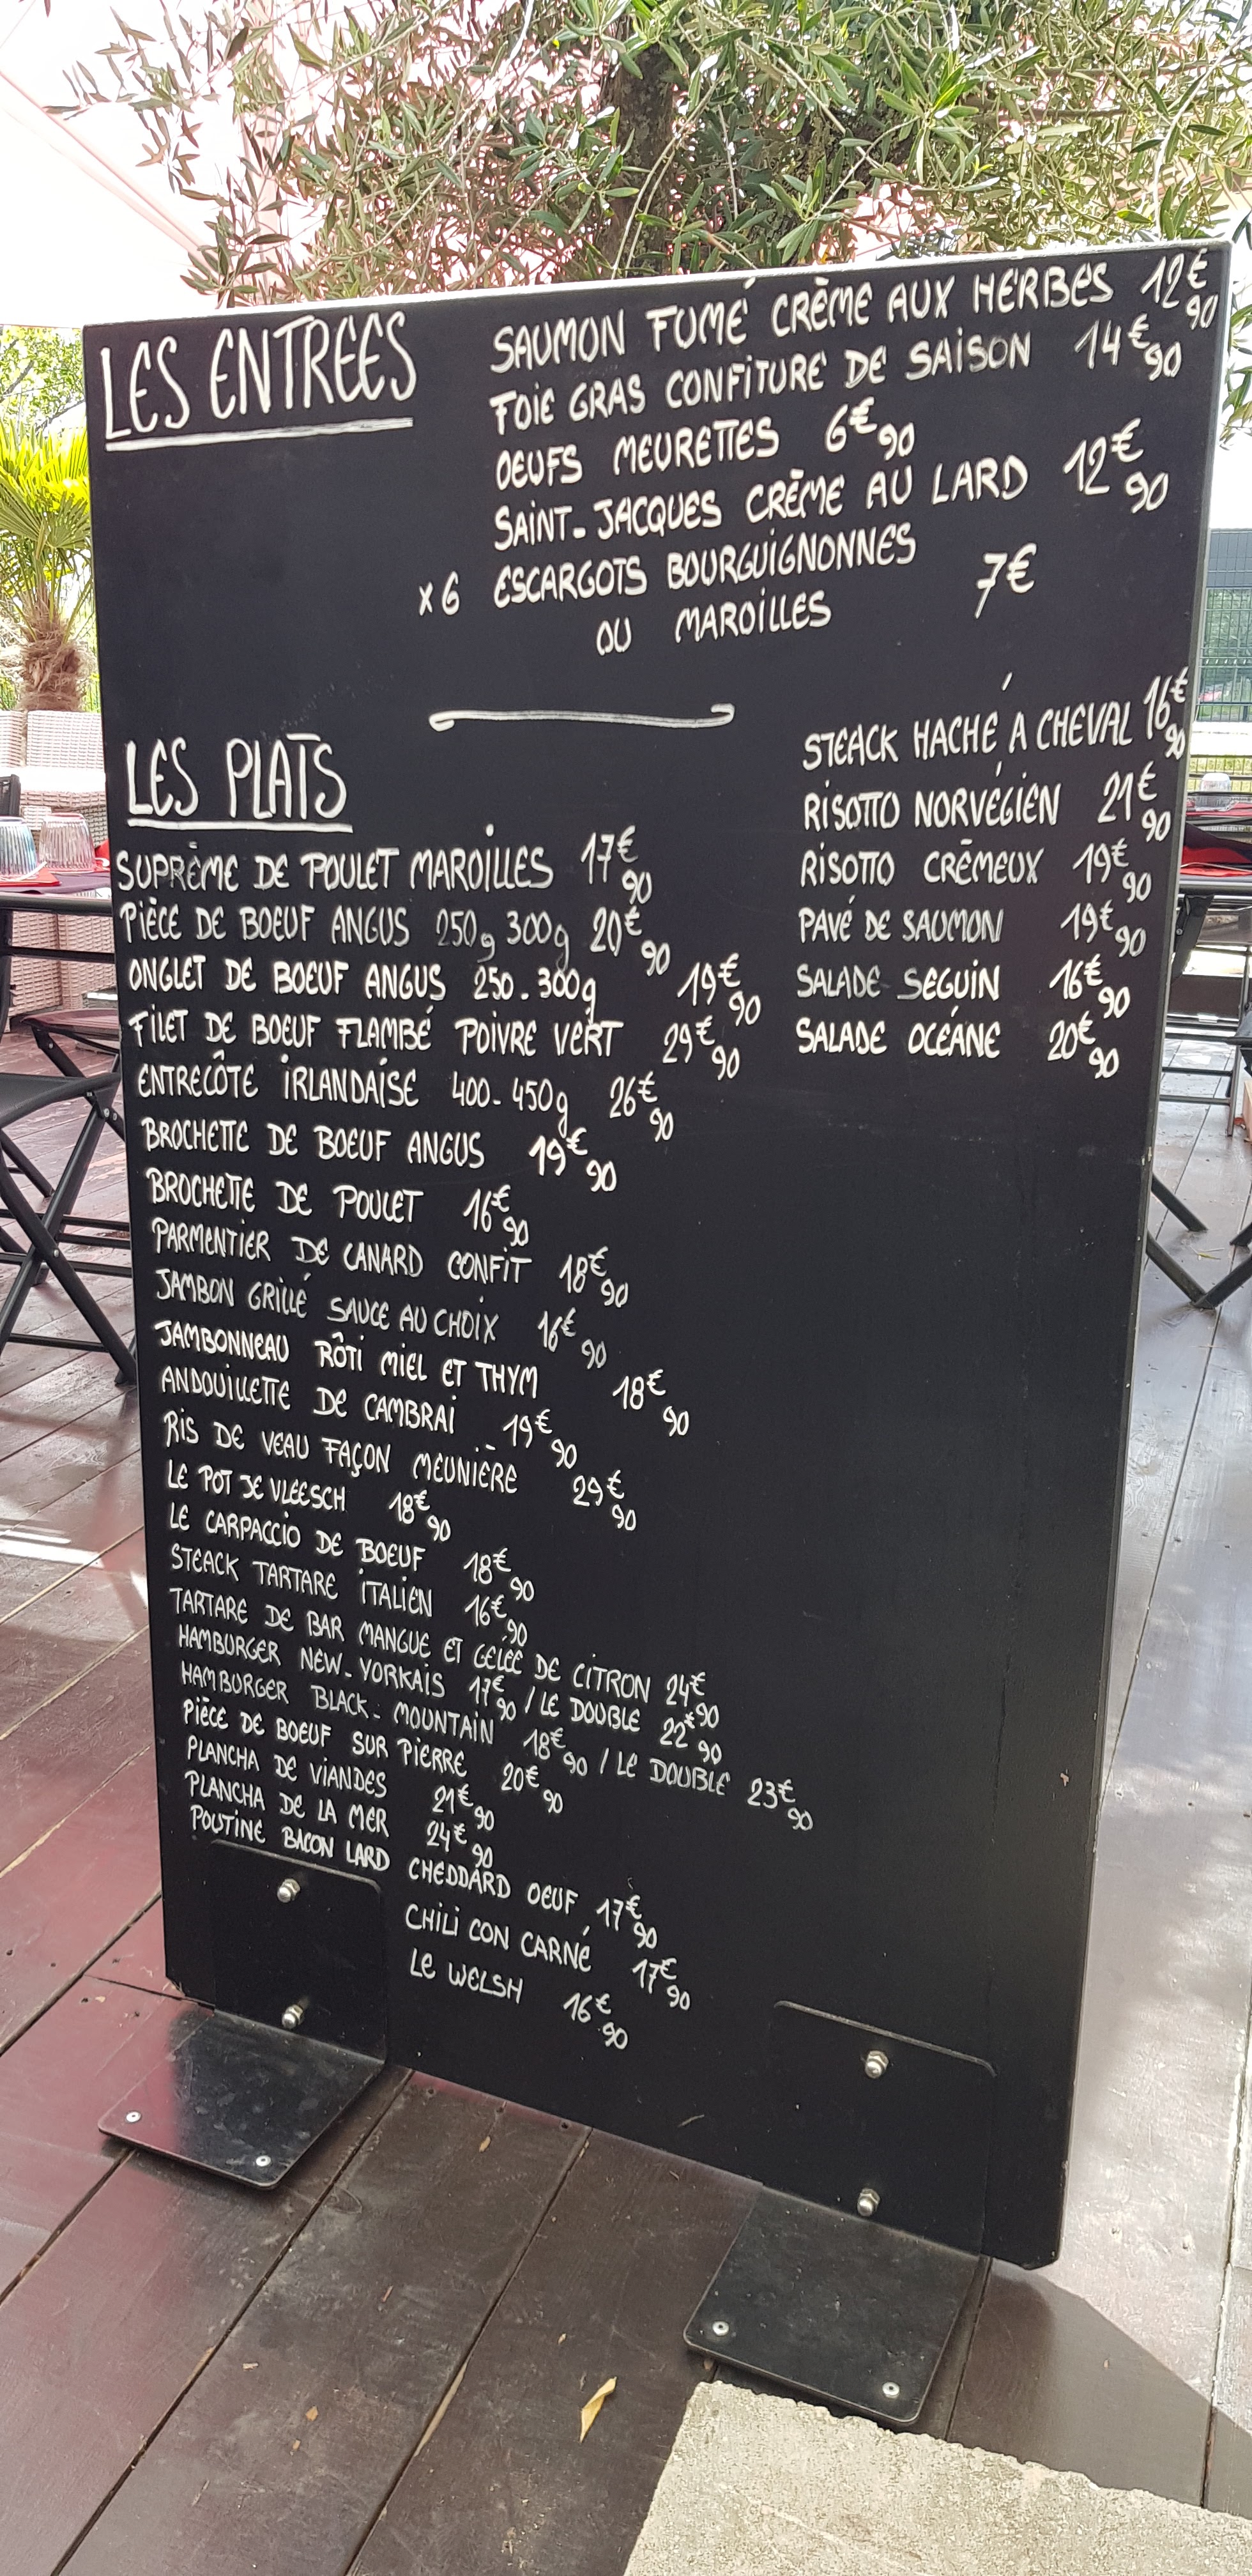 LES ENTREES
SAUMON FUMÉ CRÈME AUX HERBES 12€90
FOIE GRAS CONFITURE DE SAISON 14€90
OEUFS MEURETTES 6€90
SAINT-JACQUES CRÈME AU LARD 12€90
x6 ESCARGOTS BOURGUIGNONNES
OU MAROILLES 7€
LES PLATS
SUPRÈME DE POULET MAROILLES 17€90
PIÈCE DE BOEUF ANGUS 250g 300g 20€90
ONGLET DE BOEUF ANGUS 250.300g 19€90
FILET DE BOEUF FLAMBÉ POIVRE VERT 29€90
ENTRECÔTE IRLANDAISE 400-450g 26€90
BROCHETTE DE BOEUF ANGUS 19€90
BROCHETTE DE POULET 16€90
PARMENTIER DE CANARD CONFIT 18€90
JAMBON GRILLÉ SAUCE AU CHOIX 16€90
JAMBONNEAU RÔTI MIEL ET THYM 18€90
ANDOUILLETTE DE CAMBRAI 19€90
RIS DE VEAU FAÇON MEUNIÈRE 29€90
LE POT JE VLEESCH 18€90
LE CARPACCIO DE BOEUF 18€90
STEACK TARTARE ITALIEN 16€90
TARTARE DE BAR MANGUE ET GELÉE DE CITRON 24€90
HAMBURGER NEW-YORKAIS 17€90 / LE DOUBLE 22€90
HAMBURGER BLACK-MOUNTAIN 18€90 / LE DOUBLE 23€90
PIÈCE DE BOEUF SUR PIERRE 20€90
PLANCHA DE VIANDES 21€90
PLANCHA DE LA MER 24€90
POUTINE BACON LARD CHEDDARD OEUF 17€90
CHILI CON CARNÉ 17€90
LE WELSH 16€90
STEACK HACHÉ À CHEVAL 16€90
RISOTTO NORVÉGIEN 21€90
RISOTTO CRÈMEUX 19€90
PAVÉ DE SAUMON 19€90
SALADE SEGUIN 16€90
SALADE OCÉANE 20€90